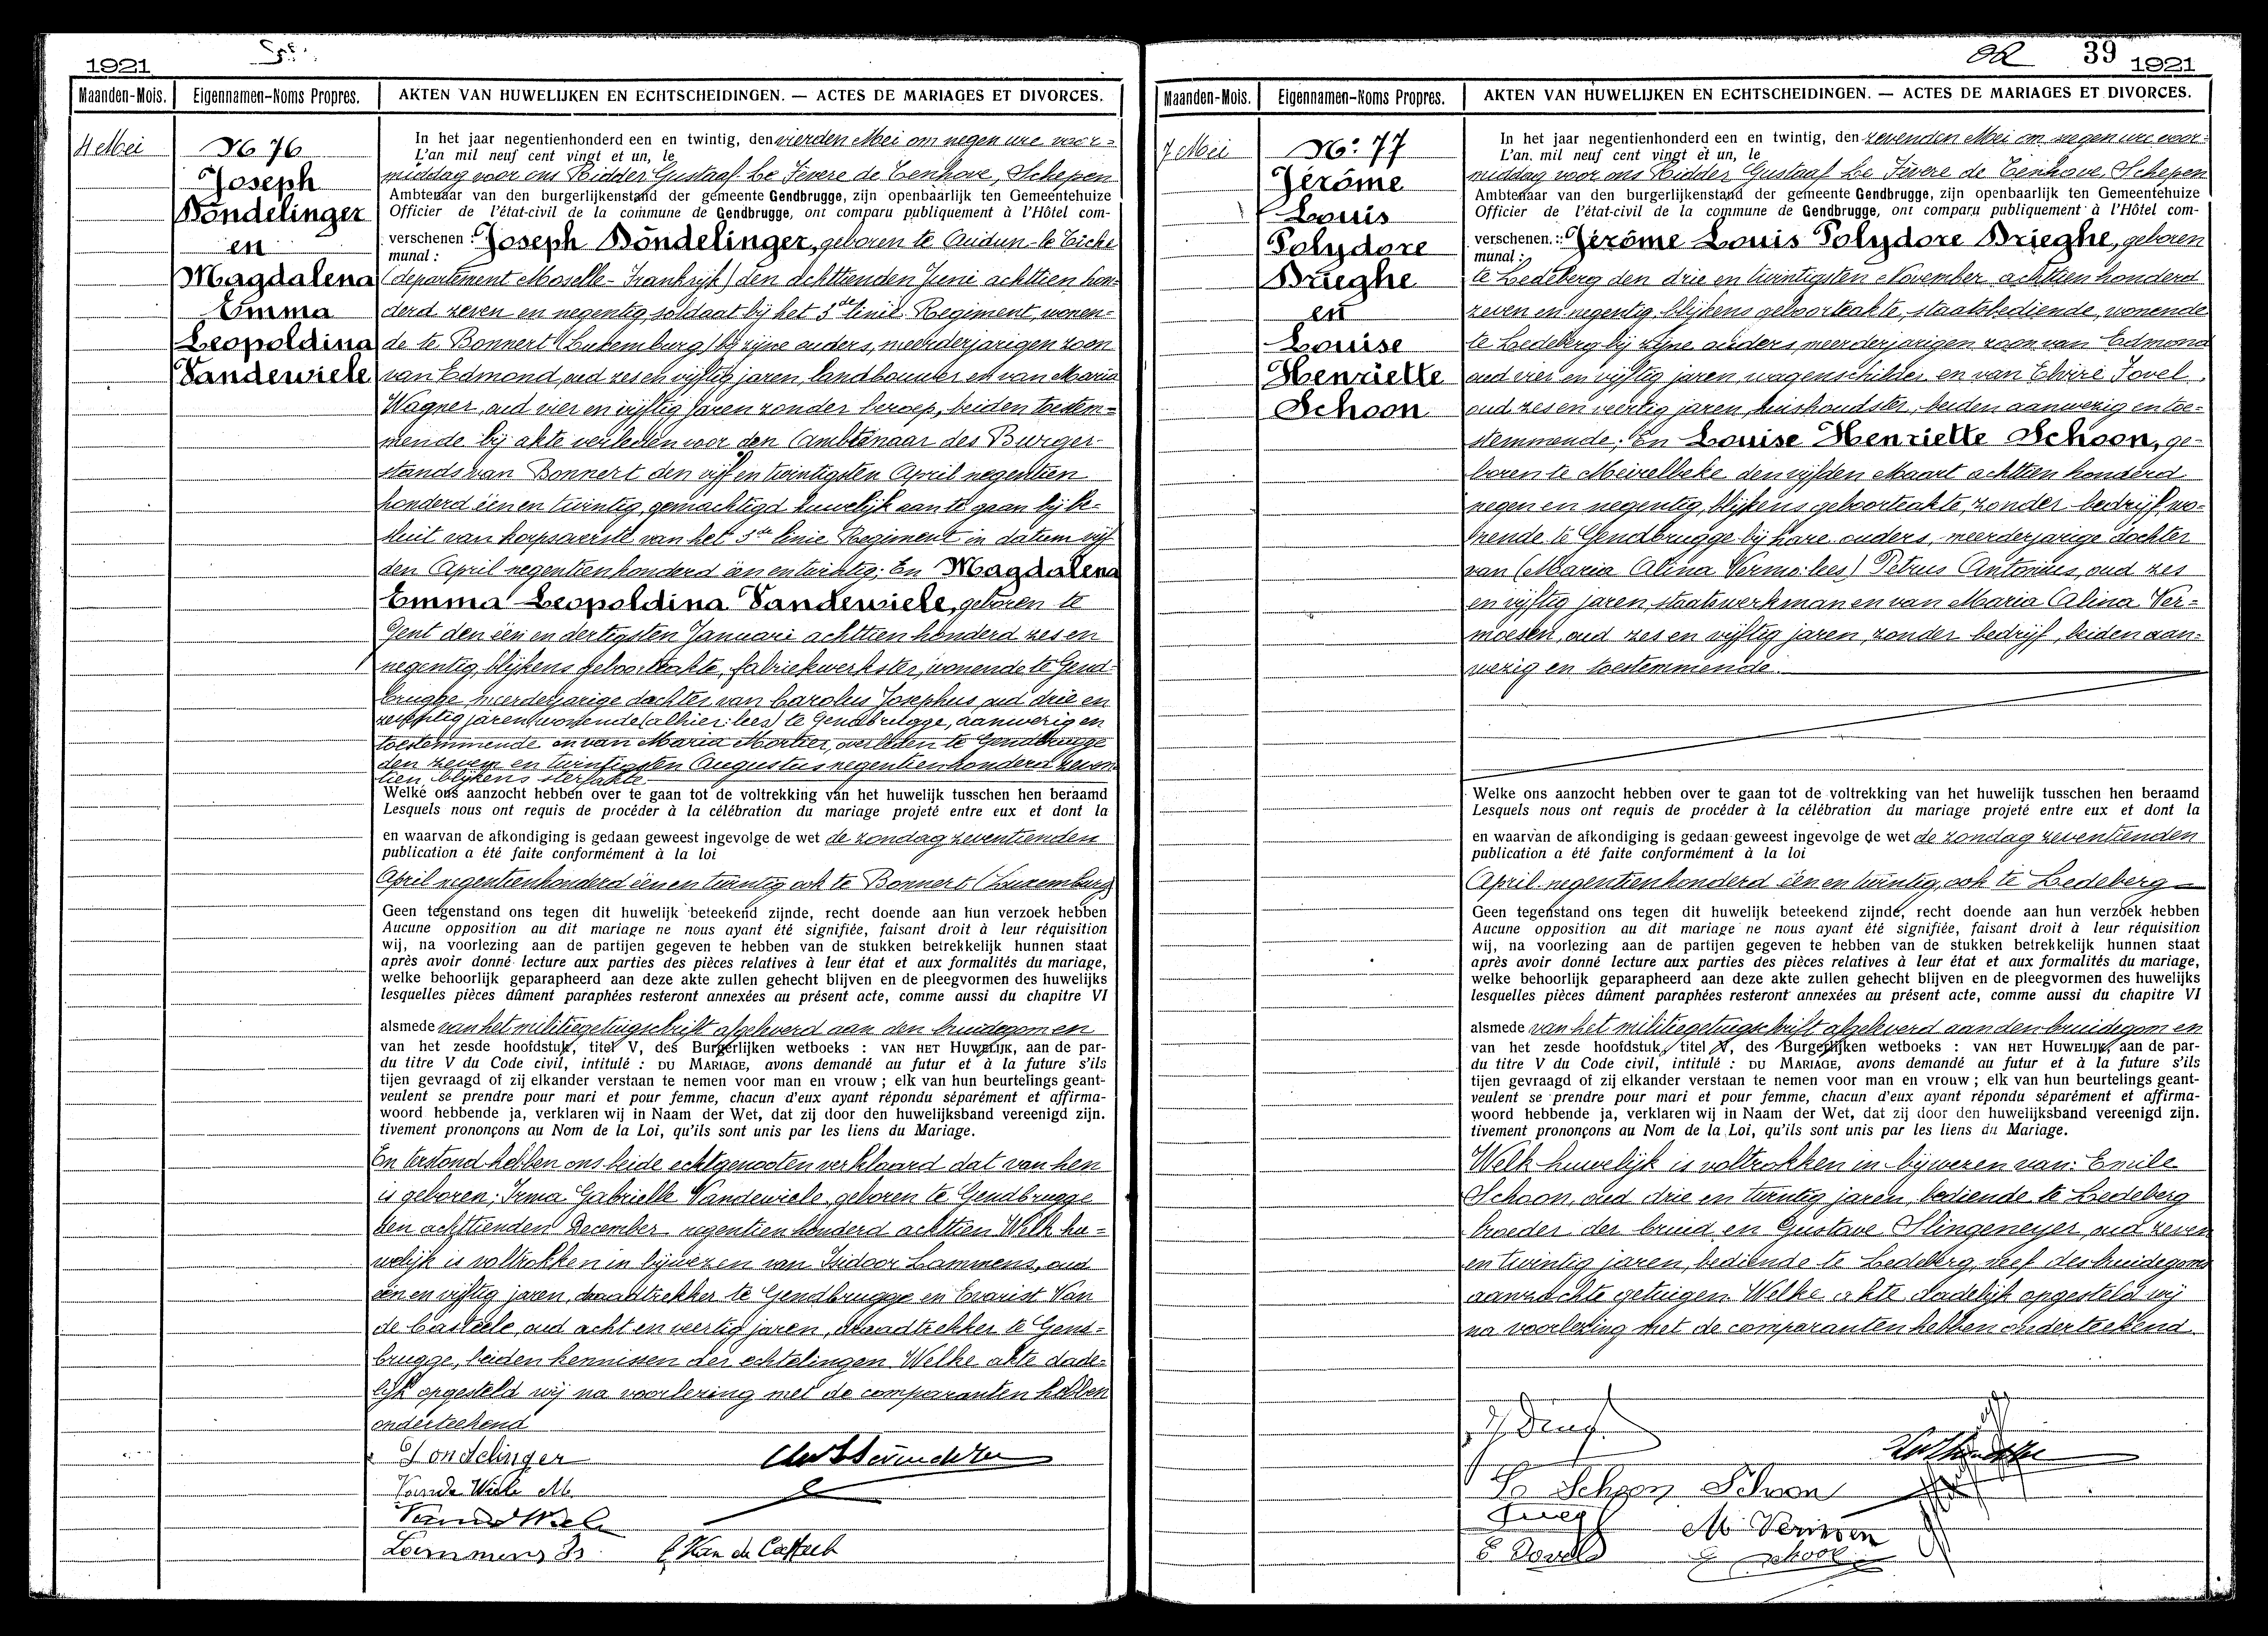 1921
Maanden-Mois. Eigennamen-Noms Propres. AKTEN VAN HUWELIJKEN EN ECHTSCHEIDINGEN. — ACTES DE MARIAGES ET DIVORCES.
4 Mei
No 76
Joseph
Döndelinger
en
Magdalena
Emma
Leopoldina
Vandewiele
In het jaar negentienhonderd een en twintig, den vierden Mei om negen ure voor-
L'an mil neuf cent vingt et un, le
middag voor ons Ridder Gustaaf Le Fèvere de Tenhove, Schepen
Ambtenaar van den burgerlijkenstand der gemeente Gendbrugge, zijn openbaarlijk ten Gemeentehuize
Officier de l'état-civil de la commune de Gendbrugge, ont comparu publiquement à l'Hôtel com-
verschenen : Joseph Döndelinger, geboren te Audun-le Tiche
munal :
(departement Moselle-Frankrijk) den achttienden Juni achttien hon-
derd zeven en negentig, soldaat bij het 5de linie Regiment, wonen-
de te Bonnert (Luxemburg) bij zijne ouders, meerderjarigen zoon
van Edmond, oud zes en vijftig jaren, landbouwer en van Maria
Wagner, oud vier en vijftig jaren zonder beroep, beiden toestem-
mende bij akte verleden voor den Ambtenaar des Burger-
stands van Bonnert den vijf en twintigsten April negentien
honderd één en twintig, gemachtigd huwelijk aan te gaan bij be-
sluit van korpsoverste van het 5de linie Regiment in datum vijf
den April negentienhonderd één en twintig; En Magdalena
Emma Leopoldina Vandewiele, geboren te
Gent den één en dertigsten Januari achttien honderd zes en
negentig, blijkens geboorteakte, fabriekwerkster, wonende te Gend-
brugge, meerderjarige dochter van Carolus Josephus, oud drie en
zeventig jaren, wonende (alhier: lees) te Gendbrugge, aanwezig en
toestemmende en van Maria Mortier, overleden te Gendbrugge
den zeven en twintigsten Augustus negentienhonderd zeven-
tien, blijkens sterfakte
Welke ons aanzocht hebben over te gaan tot de voltrekking van het huwelijk tusschen hen beraamd
Lesquels nous ont requis de procéder à la célébration du mariage projeté entre eux et dont la
en waarvan de afkondiging is gedaan geweest ingevolge de wet de zondag zeventienden
publication a été faite conformément à la loi
April negentienhonderd één en twintig ook te Bonnert (Luxemburg)
Geen tegenstand ons tegen dit huwelijk beteekend zijnde, recht doende aan hun verzoek hebben
Aucune opposition au dit mariage ne nous ayant été signifiée, faisant droit à leur réquisition
wij, na voorlezing aan de partijen gegeven te hebben van de stukken betrekkelijk hunnen staat
après avoir donné lecture aux parties des pièces relatives à leur état et aux formalités du mariage,
welke behoorlijk geparapheerd aan deze akte zullen gehecht blijven en de pleegvormen des huwelijks
lesquelles pièces dûment paraphées resteront annexées au présent acte, comme aussi du chapitre VI
alsmede van het militiegetuigschrift afgeleverd aan den bruidegom en
van het zesde hoofdstuk, titel V, des Burgerlijken wetboeks : VAN HET HUWELIJK, aan de par-
du titre V du Code civil, intitulé : DU MARIAGE, avons demandé au futur et à la future s'ils
tijen gevraagd of zij elkander verstaan te nemen voor man en vrouw ; elk van hun beurtelings geant-
veulent se prendre pour mari et pour femme, chacun d'eux ayant répondu séparément et affirma-
woord hebbende ja, verklaren wij in Naam der Wet, dat zij door den huwelijksband vereenigd zijn.
tivement prononçons au Nom de la Loi, qu'ils sont unis par les liens du Mariage.
En terstond hebben ons beide echtgenooten verklaard dat van hen
is geboren: Irma Gabrielle Vandewiele, geboren te Gendbrugge
den achttienden December negentien honderd achttien Welk hu-
welijk is voltrokken in bijwezen van Isidoor Lammens, oud
één en vijftig jaren, draadtrekker te Gendbrugge en Evarist Van
de Casteele, oud acht en veertig jaren, draadtrekker te Gend-
brugge, beiden kennissen der echtelingen. Welke akte dade-
lijk opgesteld wij na voorlezing met de comparanten hebben
onderteekend
Dondelinger
Vande Wiele M.
Lammens Is. E. Van de Casteele
39
1921
Maanden-Mois. Eigennamen-Noms Propres. AKTEN VAN HUWELIJKEN EN ECHTSCHEIDINGEN. — ACTES DE MARIAGES ET DIVORCES.
7 Mei
No: 77
Jérôme
Louis
Polydore
Brieghe
en
Louise
Henriette
Schoon
In het jaar negentienhonderd een en twintig, den zevenden Mei om negen ure voor-
L'an mil neuf cent vingt et un, le
middag voor ons Ridder Gustaaf Le Fèvere de Tenhove, Schepen
Ambtenaar van den burgerlijkenstand der gemeente Gendbrugge, zijn openbaarlijk ten Gemeentehuize
Officier de l'état-civil de la commune de Gendbrugge, ont comparu publiquement à l'Hôtel com-
verschenen : Jérôme Louis Polydore Brieghe, geboren
munal :
te Ledeberg den drie en twintigsten November achttien honderd
zeven en negentig, blijkens geboorteakte, staatsbediende, wonende
te Ledeberg bij zijne ouders, meerderjarigen zoon van Edmond
oud vier en vijftig jaren, wagenschilder en van Elvire Jovel,
oud zes en veertig jaren, huishoudster, beiden aanwezig en toe-
stemmende; En Louise Henriette Schoon, ge-
boren te Meirelbeke den vijfden Maart achttien honderd
negen en negentig, blijkens geboorteakte, zonder bedrijf wo-
nende te Gendbrugge bij hare ouders, meerderjarige dochter
van (Maria Alina Vermo: lees) Petrus Antonius, oud zes
en vijftig jaren, staatswerkman en van Maria Alina Ver-
moesen, oud zes en vijftig jaren, zonder bedrijf, beiden aan-
wezig en toestemmende.
Welke ons aanzocht hebben over te gaan tot de voltrekking van het huwelijk tusschen hen beraamd
Lesquels nous ont requis de procéder à la célébration du mariage projeté entre eux et dont la
en waarvan de afkondiging is gedaan geweest ingevolge de wet de zondag zeventienden
publication a été faite conformément à la loi
April negentienhonderd één en twintig, ook te Ledeberg
Geen tegenstand ons tegen dit huwelijk beteekend zijnde, recht doende aan hun verzoek hebben
Aucune opposition au dit mariage ne nous ayant été signifiée, faisant droit à leur réquisition
wij, na voorlezing aan de partijen gegeven te hebben van de stukken betrekkelijk hunnen staat
après avoir donné lecture aux parties des pièces relatives à leur état et aux formalités du mariage,
welke behoorlijk geparapheerd aan deze akte zullen gehecht blijven en de pleegvormen des huwelijks
lesquelles pièces dûment paraphées resteront annexées au présent acte, comme aussi du chapitre VI
alsmede van het militiegetuigschrift afgeleverd aan den bruidegom en
van het zesde hoofdstuk, titel V, des Burgerlijken wetboeks : VAN HET HUWELIJK, aan de par-
du titre V du Code civil, intitulé : DU MARIAGE, avons demandé au futur et à la future s'ils
tijen gevraagd of zij elkander verstaan te nemen voor man en vrouw ; elk van hun beurtelings geant-
veulent se prendre pour mari et pour femme, chacun d'eux ayant répondu séparément et affirma-
woord hebbende ja, verklaren wij in Naam der Wet, dat zij door den huwelijksband vereenigd zijn.
tivement prononçons au Nom de la Loi, qu'ils sont unis par les liens du Mariage.
Welk huwelijk is voltrokken in bijwezen van: Emile
Schoon, oud drie en twintig jaren, bediende te Ledeberg
broeder der bruid en Gustave Slingeneyer, oud zeven
en twintig jaren, bediende te Ledeberg, neef des bruidegoms
aanzochte getuigen. Welke akte dadelijk opgesteld wij
na voorlezing met de comparanten hebben onderteekend.
Schoon Schoon